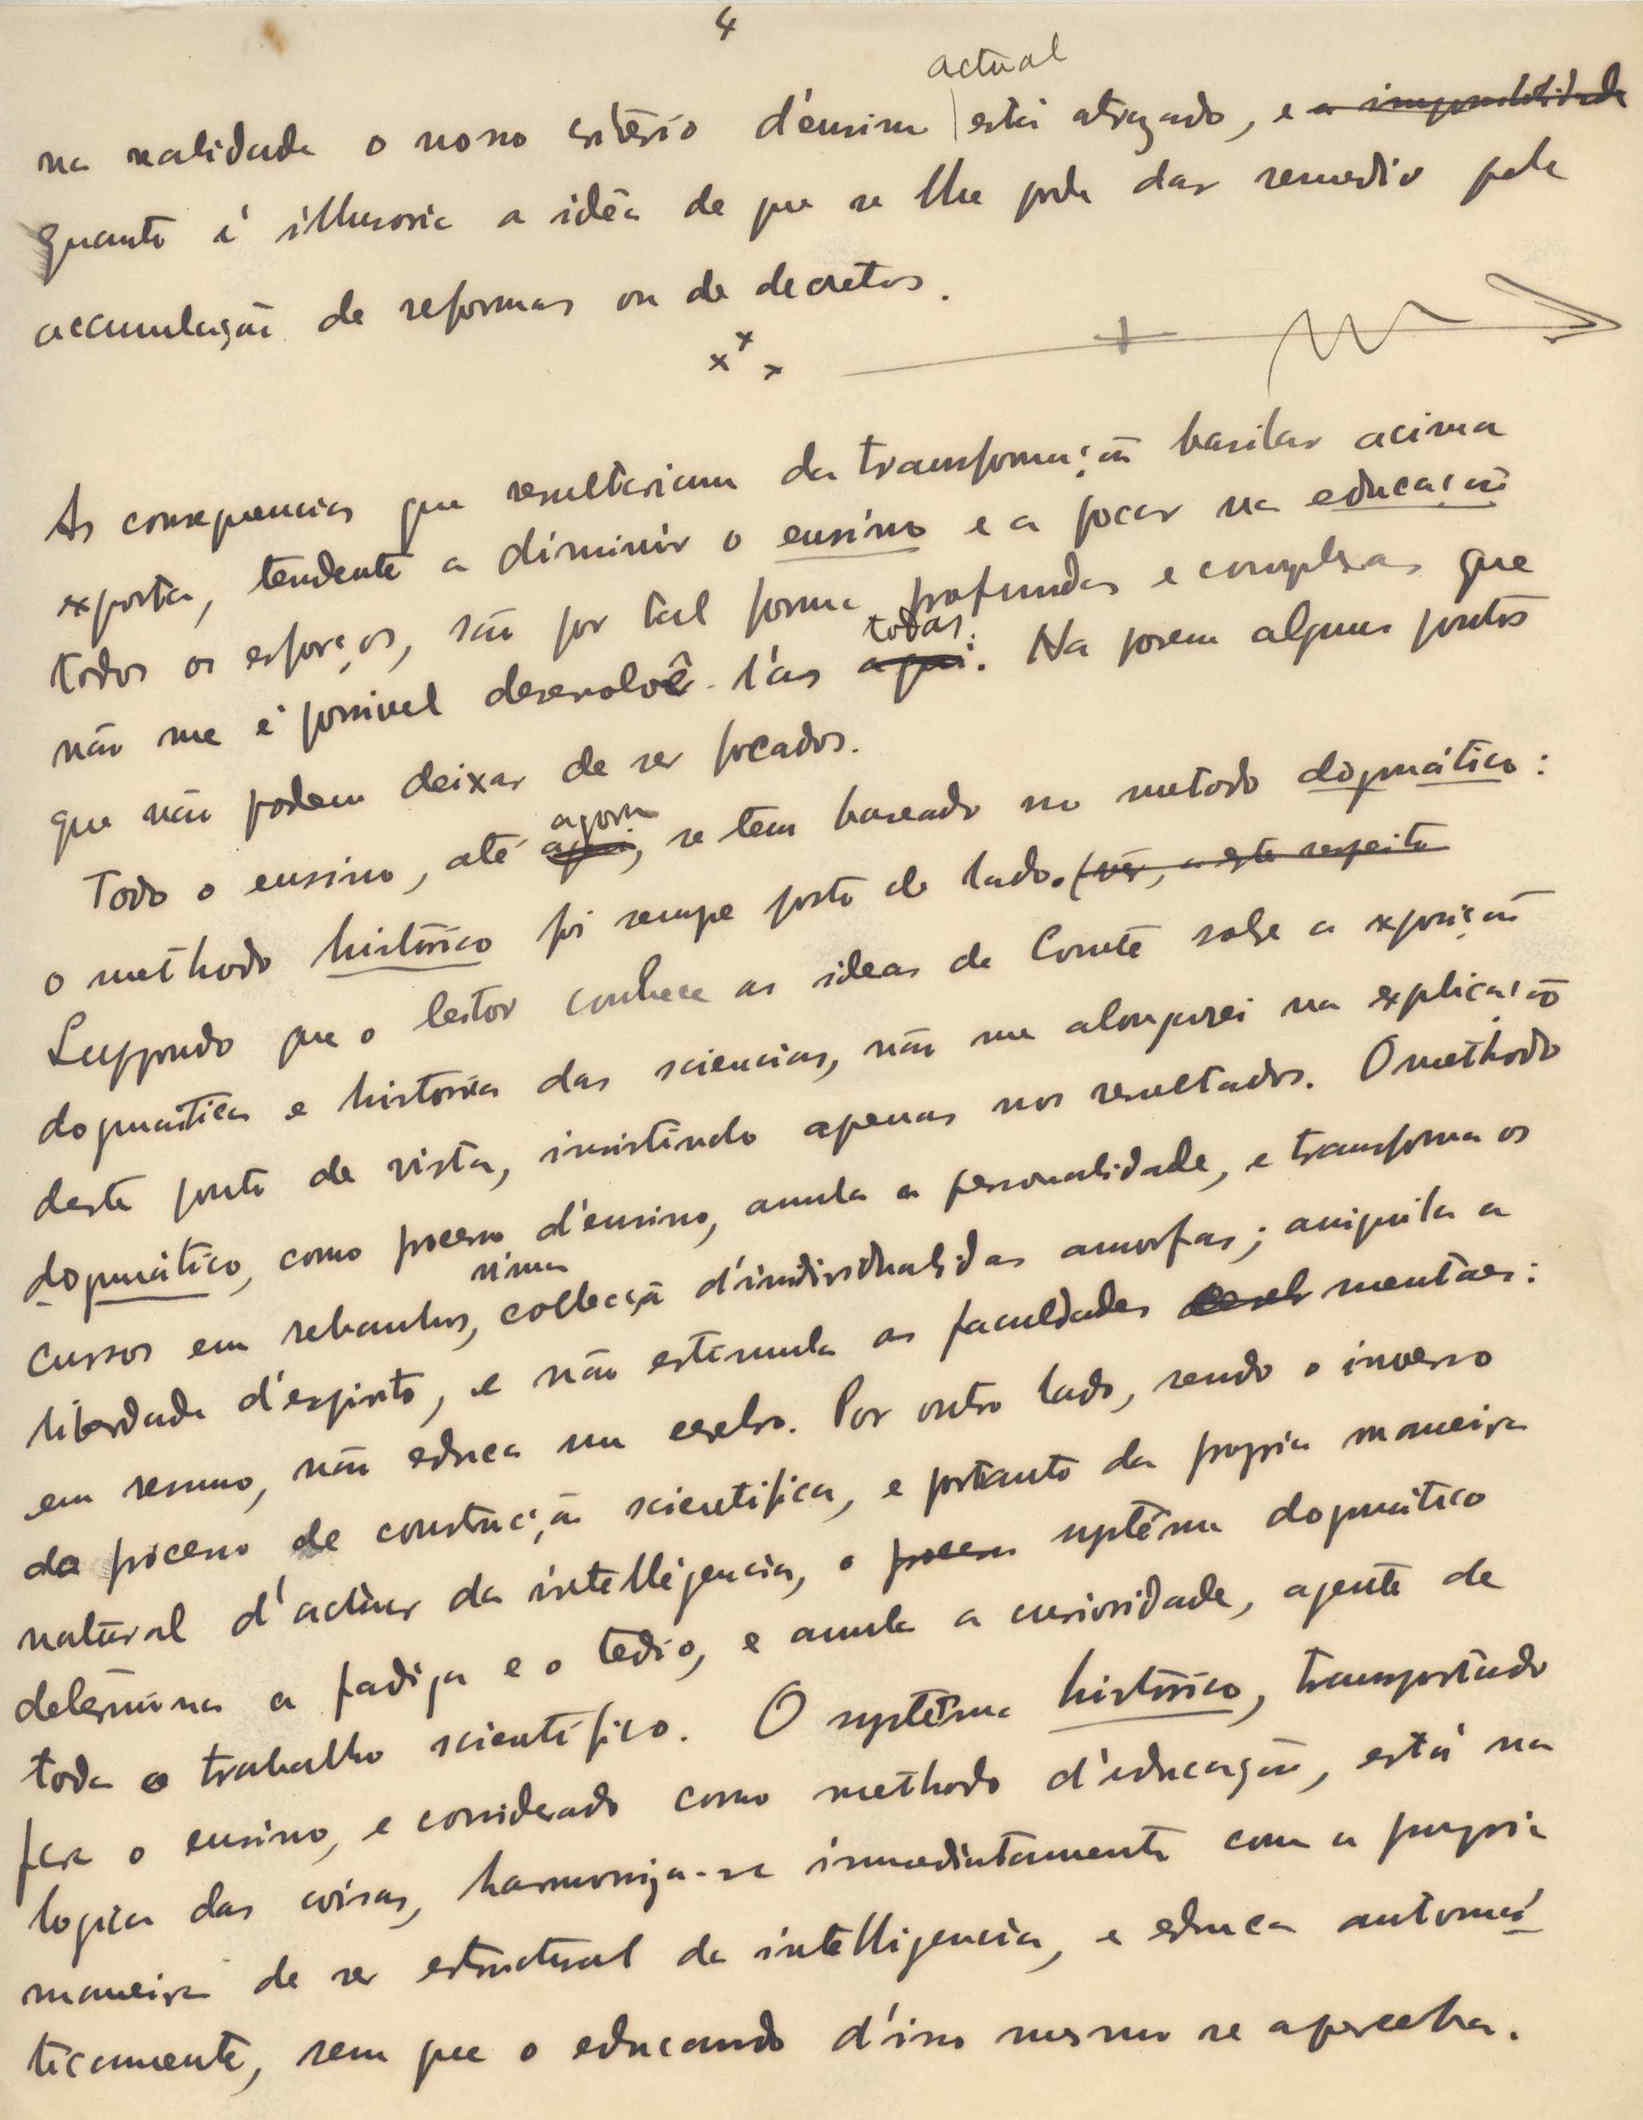 4
actual
na realidade o nosso critério d'ensino está atrazado, e a impossibilidade
quanto é illusoria a idêa de que se lhe pode dar remedio pela
accumulação de reformas ou de decretos.
x x x
As consequencias que resultariam da transformação basilar acima
exposta, tendente a diminuir o ensino e a focar na educação
todos os esforços, são por tal forma profundas e complexas que
todas.
não me é possivel desenvolvê-l'as aqui. Ha porem alguns pontos
que não podem deixar de ser focados.
agora
Todo o ensino, até aqui, se tem baseado no metodo dogmático:
o methodo histórico foi sempre posto de lado. (vêr, a este respeito
Suppondo que o leitor conhece as ideas de Comte sobre a exposição
dogmática e historica das sciencias, não me alongarei na explicação
deste ponto de vista, insistindo apenas nos resultados. O methodo
dogmático, como processo d'ensino, anula a personalidade, e transforma os
n'uma
cursos em rebanhos, collecçã d'individualidas amorfas; aniquila a
liberdade d'espirito, e não estimula as faculdades mentaes:
em resumo, não educa um cerebro. Por outro lado, sendo o inverso
do processo de construcção scientifica, e portanto da propria maneira
natural d'actuar da intelligencia, o processo systêma dogmático
determina a fadiga e o tedio, e anula a curiosidade, agente de
todo o trabalho scientifico. O systêma histórico, transportado
para o ensino, e considerado como methodo d'educação, está na
logica das coisas, harmoniza-se immediatamente com a propria
maneira de ser estructural da intelligencia, e educa automá
ticamente, sem que o educando d'isso mesmo se aperceba.